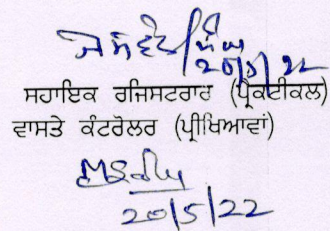 20/5/22
ਸਹਾਇਕ ਰਜਿਸਟਰਾਰ (ਪ੍ਰੈਕਟੀਕਲ)
ਵਾਸਤੇ ਕੰਟਰੋਲਰ (ਪ੍ਰੀਖਿਆਵਾਂ)
20/5/22